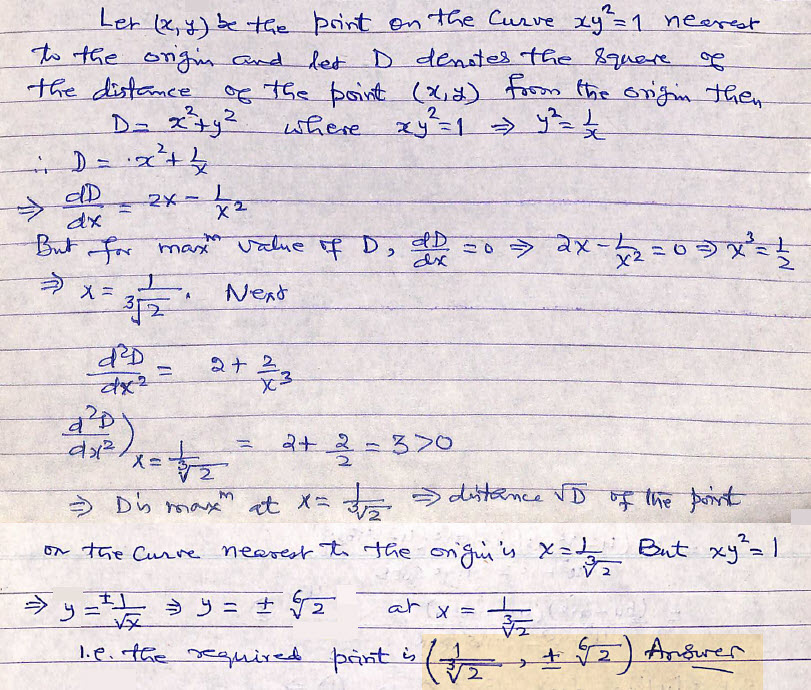 Let (x, y) be the point on the curve xy²=1 nearest
to the origin and let D denotes the square of
the distance of the point (x, y) from the origin then
D = x²+y² where xy²=1 ⇒ y² = 1/x
∴ D = x² + 1/x
⇒ dD/dx = 2x − 1/x²
But for maxᵐ value of D, dD/dx = 0 ⇒ 2x − 1/x² = 0 ⇒ x³ = 1/2
⇒ x = 1/∛2. Next
d²D/dx² = 2 + 2/x³
d²D/dx²)ₓ₌ 1/∛2 = 2 + 2/2 = 3 > 0
⇒ D is maxᵐ at x = 1/∛2 ⇒ distance √D of the point
on the curve nearest to the origin is x = 1/∛2 But xy² = 1
⇒ y = ±1/√x ⇒ y = ± ⁶√2 at x = 1/∛2
i.e. the required point is (1/∛2, ± ⁶√2) Answer